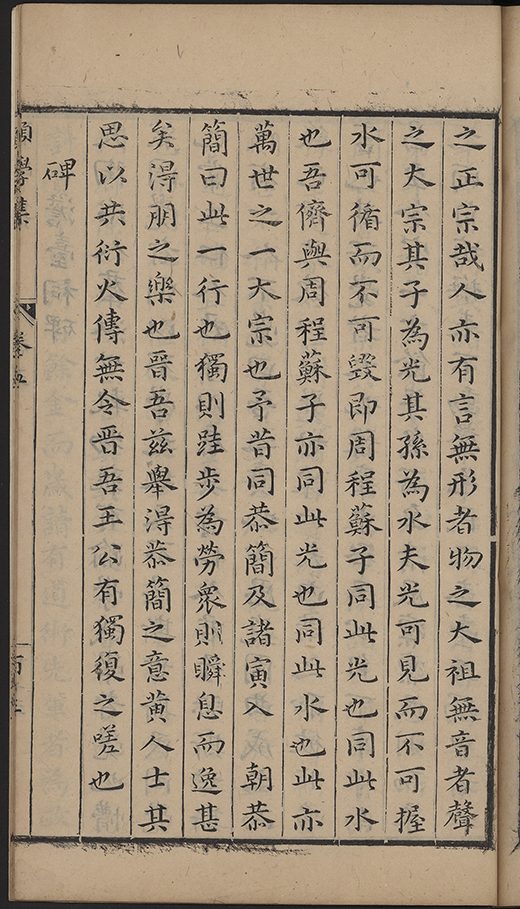 之正宗哉人亦有言無形者物之大祖無音者聲
之大宗其子為光其孫為水夫光可見而不可握
水可循而不可毀即周程蘇子同此光也同此水
也吾儕與周程蘇子亦同此光也同此水也此亦
萬世之一大宗也予昔同恭簡及諸寅入 朝恭
簡曰此一行也獨則跬步為勞衆則瞬息而逸甚
矣得朋之樂也晋吾兹舉得恭簡之意黃人士其
思以共衍火傳無令晋吾王公有獨復之嗟也
碑
學集
卷